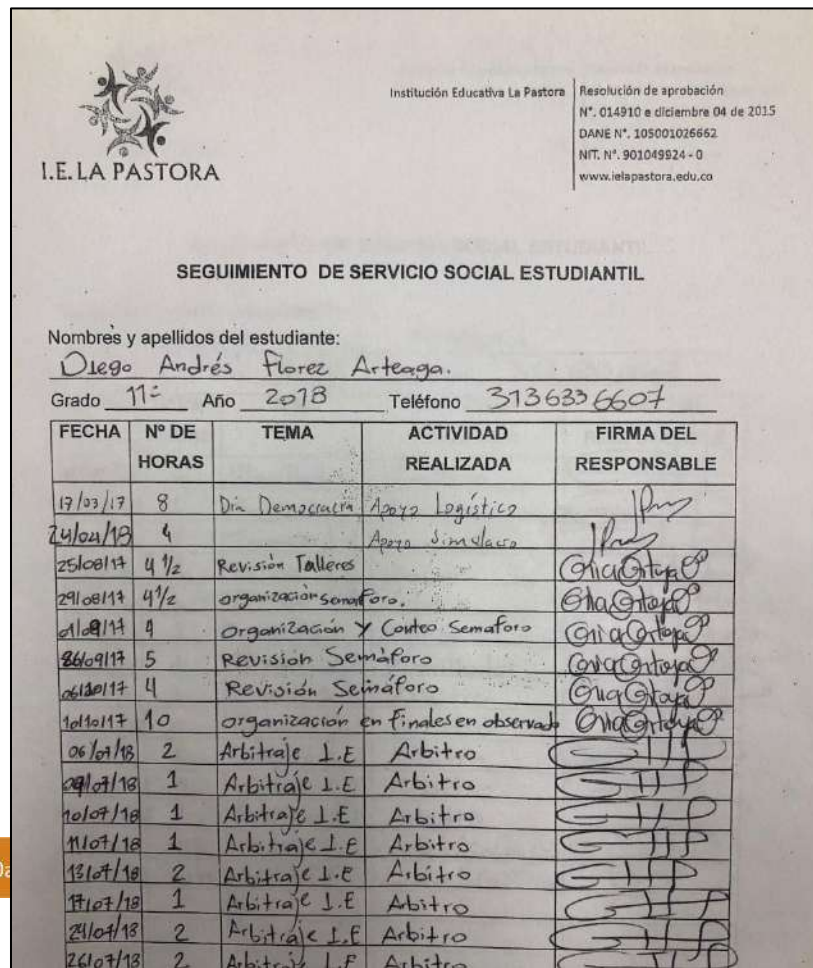 Institución Educativa La Pastora
Resolución de aprobación
N°. 014910 e diciembre 04 de 2015
DANE N°. 105001026662
NIT. N°. 901049924 - 0
www.ielapastora.edu.co
I.E. LA PASTORA
SEGUIMIENTO DE SERVICIO SOCIAL ESTUDIANTIL
Nombres y apellidos del estudiante:
Diego Andrés Florez Arteaga.
Grado 11° Año 2018 Teléfono 3136336607
FECHA N° DE HORAS TEMA ACTIVIDAD REALIZADA FIRMA DEL RESPONSABLE
17/03/17 8 Día Democracia Apoyo Logístico
24/04/18 4 Apoyo Simulacro
25/08/17 4 1/2 Revisión Talleres
29/08/17 4 1/2 organización semaforo.
01/09/17 4 Organización y Conteo Semaforo
26/09/17 5 Revisión Semáforo
06/10/17 4 Revisión Semáforo
10/10/17 10 organización en finales en observado
06/07/18 2 Arbitraje I.E Arbitro
09/07/18 1 Arbitraje I.E Arbitro
10/07/18 1 Arbitraje I.E Arbitro
11/07/18 1 Arbitraje I.E Arbitro
13/07/18 2 Arbitraje I.E Arbitro
17/07/18 1 Arbitraje I.E Arbitro
24/07/18 2 Arbitraje I.E Arbitro
26/07/18 2 Arbitraje I.E Arbitro